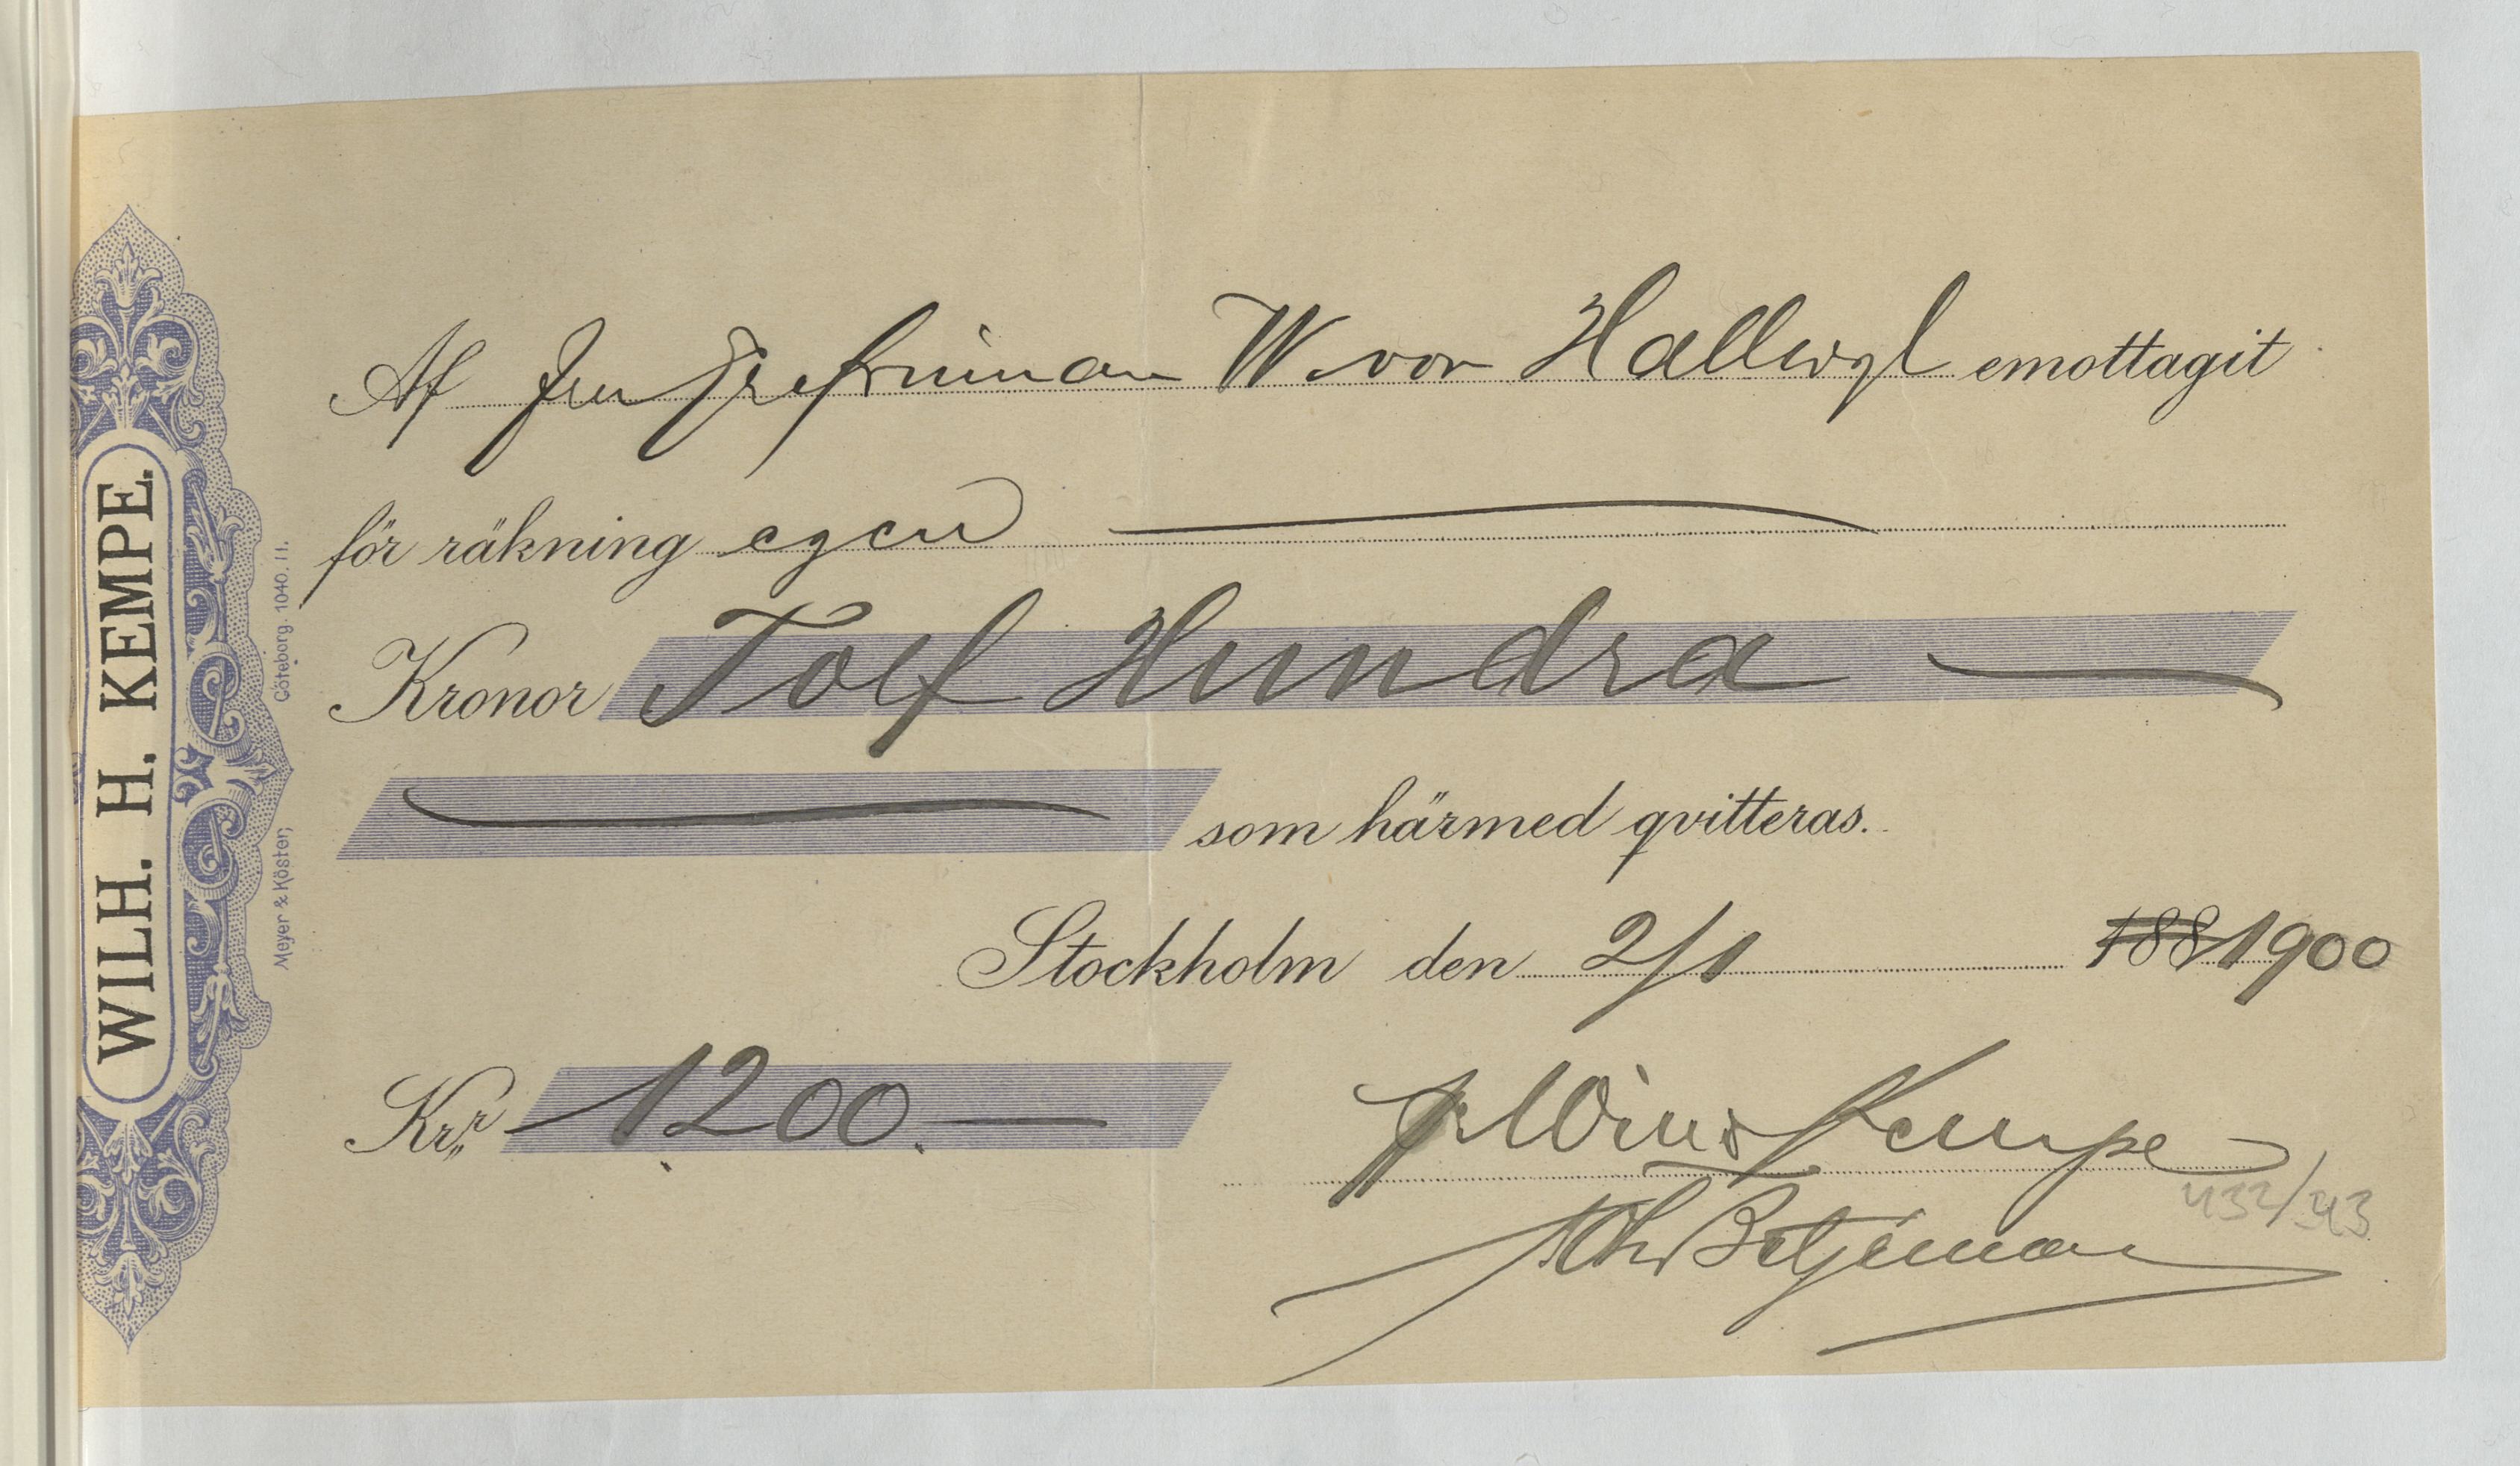 WILH. H. KEMPE.
Meyer & Köster, Göteborg. 1040. 11.
Af Fru Grefvinnan W. von Hallwyl emottagit
för räkning egen
Kronor Tolf Hundra
som härmed qvitteras.
Stockholm den 2/1 188 1900
Kr. 1200.
Kempe
432/343